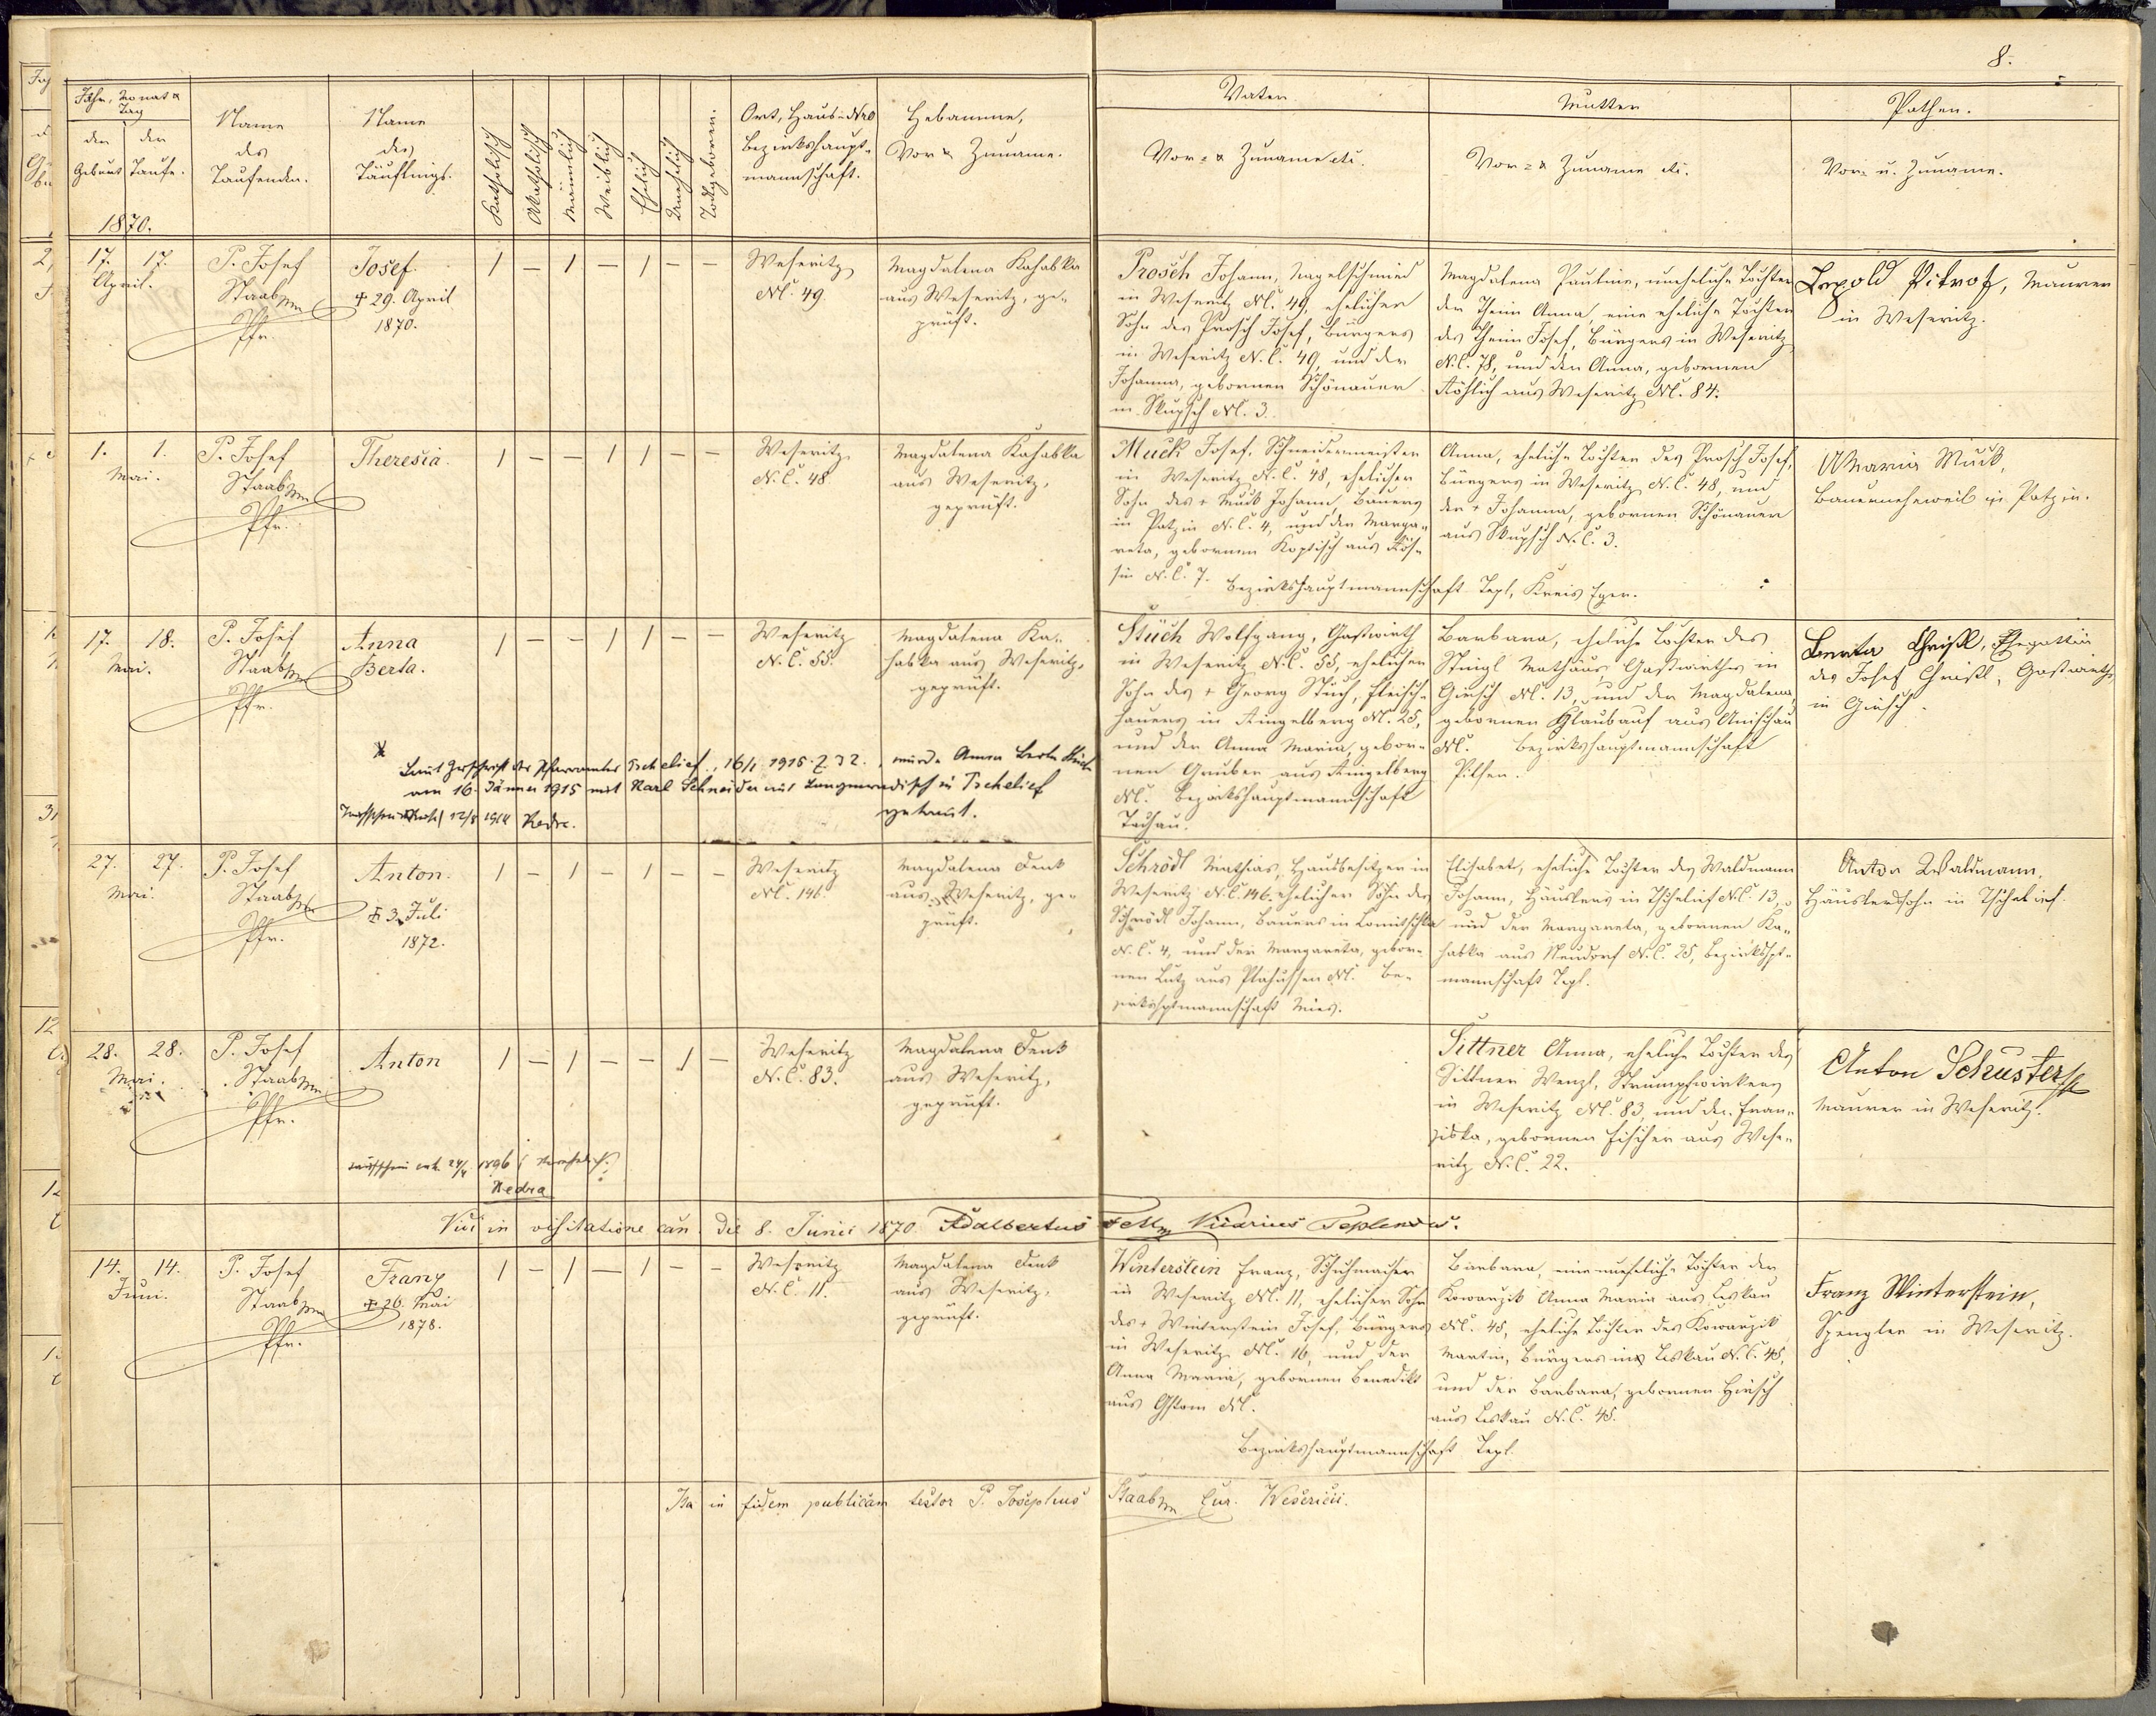 8.
Jahr, Monat &
Tag
der Geburt
der Taufe.
Name
des
Taufenden.
Name
des
Täuflings.
Katholisch
Akatholisch
Männlich
Weiblich
Ehelich
Unehelich
Todtgeboren.
Ort, Haus-Nro
Bezirkshaupt-
mannschaft.
Hebamme,
Vor & Zuname.
Vater
Vor- & Zuname etc.
Mutter
Vor- & Zuname etc.
Pathen.
Vor- u. Zuname.
1870.
17. 17.
April.
P. Josef
Staab
Pfr.
Josef.
† 29. April
1870.
1 – 1 – 1 – –
Weseritz
NC. 49.
Magdalena Kahabka
aus Weseritz, ge-
prüft.
Prosch Johann, Nagelschmied
in Weseritz NC. 49, ehelicher
Sohn des Prosch Josef, Bürgers
in Weseritz N.C. 49, und der
Johanna, gebornen Schönauer
in Skupsch NC. 3.
Magdalena Pauline, uneheliche Tochter
der Theim Anna, eine eheliche Tochter
des Theim Josef, Bürgers in Weseritz
N.C. 78, und der Anna, gebornen
aus Weseritz NC. 84.
Leopold Pitrof, Maurer
in Weseritz.
1. 1.
Mai.
P. Josef
Staab
Pfr.
Theresia.
1 – – 1 1 – –
Weseritz
N.C. 48
Magdalena Kahabka
aus Weseritz,
geprüft.
Muck Josef, Schneidermeister
in Weseritz N.C. 48, ehelicher
Sohn des † Muck Johann, Bauers
in Potzin N.C. 4, und der Marga-
reta, gebornen Koptisch aus
N.C. 7.
Bezirkshauptmannschaft Tepl, Kreis Eger.
Anna, eheliche Tochter des Prosch Josef,
Bürgers in Weseritz N.C. 48, und
der † Johanna, gebornen Schönauer
aus Skupsch N.C. 3.
Maria Muck,
Bauerneheweib in Potzin.
17. 18.
Mai.
P. Josef
Staab
Pfr.
Anna
Berta.
1 – – 1 1 – –
Weseritz
N.C. 55.
Magdalena Ka-
habka aus Weseritz,
geprüft.
Stüch Wolfgang, Gastwirth
in Weseritz N.C. 55, ehelicher
Sohn des † Georg Stüch, Fleisch-
hauers in Ringelberg NC. 25,
und der Anna Maria, gebor-
nen Gruber aus Ringelberg
NC. Bezirkshauptmannschaft
Tachau.
Barbara, eheliche Tochter des
Steigl Mathäus, Gastwirthes in
Girsch NC. 13, und der Magdalena,
gebornen Klaubauf aus Anischau
NC. Bezirkshauptmannschaft
Pilsen.
Berta Christl, Ehegattin
des Josef Christl, Gastwirths
in Girsch.
* Laut Zuschrift des Pfarramtes Tschelief, 16/1 1915 Z 32., wurde Anna Berta Stüch
am 16. Jänner 1915 mit Karl Schneider aus Langenradisch in Tschelief
getraut.
12/8 1914 Redra.
27. 27.
Mai.
P. Josef
Staab
Pfr.
Anton.
† 3. Juli
1872.
1 – 1 – 1 – –
Weseritz
NC. 146.
Magdalena Denk
aus Weseritz, ge-
prüft.
Schrödl Mathias, Hausbesitzer in
Weseritz N.C. 146. ehelicher Sohn des
Schrödl Johann, Bauers in Lomitschka
N.C. 4, und der Margareta, gebor-
nen Lutz aus Plahussen NC. Be-
zirkshptmannschaft Mies.
Elisabet, eheliche Tochter des Waldmann
Johann, Häuslers in Tschelief N.C. 13,
und der Margareta, gebornen Ka-
habka aus Neudorf N.C. 25, Bezirkshpt-
mannschaft Tepl.
Anton Waldmann,
Häuslerssohn in Tschelief.
28. 28.
Mai.
P. Josef
Staab
Pfr.
Anton
1 – 1 – – 1 –
Weseritz
N.C. 83.
Magdalena Denk
aus Weseritz,
geprüft.
Sittner Anna, eheliche Tochter des
Sittner Wenzl, Strumpfwirkers
in Weseritz NC. 83, und der Fran-
ziska, gebornen Fischer aus Wese-
ritz N.C. 22.
Anton Schuster
Maurer in Weseritz.
1896
Redra
Vidi in visitatione can. die 8. Junii 1870. Adalbertus Vicarius Teplensis.
14. 14.
Juni.
P. Josef
Staab
Pfr.
Franz
† 26. Mai
1878.
1 – 1 – 1 – –
Weseritz
N.C. 11.
Magdalena Denk
aus Weseritz,
geprüft.
Winterstein Franz, Schuhmacher
in Weseritz NC. 11, ehelicher Sohn
des † Winterstein Josef, Bürgers
in Weseritz NC. 16, und der
Anna Maria, gebornen Benedikt
aus Gstom NC.
Bezirkshauptmannschaft Tepl.
Barbara, eine uneheliche Tochter der
Kowanzik Anna Maria aus Leskau
NC. 45, eheliche Tochter des Kowanzik
Martin, Bürgers in Leskau N.C. 45,
und der Barbara, gebornen Hirsch
aus Leskau N.C. 45.
Franz Winterstein,
Spengler in Weseritz.
Ita in fidem publicam testor P. Josephus Staab Cur. Wesericii.